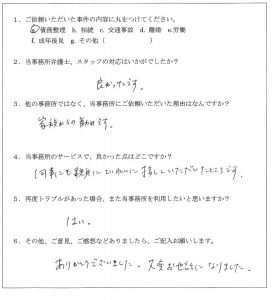 1. ご依頼いただいた事件の内容に丸をつけてください。
ⓐ債務整理 b. 相続 c. 交通事故 d. 離婚 e.労働
f. 成年後見 g. その他( )
2. 当事務所弁護士、スタッフの対応はいかがでしたか?
良かったです。
3. 他の事務所ではなく、当事務所にご依頼いただいた理由はなんですか?
家族からの勧めです。
4. 当事務所のサービスで、良かった点はどこですか?
何事にも親身にていねいに対していただいたところです。
5. 再度トラブルがあった場合、また当事務所を利用したいと思いますか?
はい。
6. その他、ご意見、ご感想などありましたら、ご記入お願いします。
ありがとうございました。大変お世話になりました。